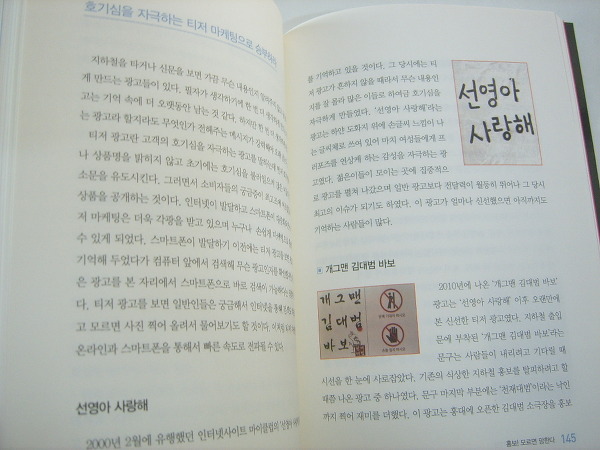 호기심을 자극하는 티저 마케팅으로 승부하라
지하철을 타거나 신문을 보면 가끔 무슨 내용인지
게 만드는 광고들이 있다. 필자가 생각하기에 한 번 더
고는 기억 속에 더 오랫동안 남는 것 같다. 하지만 한 번
는 광고라 할지라도 무엇인가 전해주는 메시지가
티저 광고란 고객의 호기심을 자극하는 광고를 말하는데
나 상품명을 밝히지 않고 초기에는 호기심을
소문을 유도시킨다. 그러면서 소비자들의 궁금증이
상품을 공개하는 것이다. 인터넷이 발달하고 스마트폰이
저 마케팅은 더욱 각광을 받고 있으며 누구나 손쉽게
수 있게 되었다. 스마트폰이 발달하기 이전에는 티저 광고를
기억해 두었다가 컴퓨터 앞에서 검색해 무슨 광고인지를
은 광고를 본 자리에서 스마트폰으로 바로 검색이 가능하다는
다. 티저 광고를 보면 일반인들은 궁금해서 인터넷을 통해
고 모르면 사진 찍어 올려서 물어보기도 할 것이다. 이처럼
온라인과 스마트폰을 통해서 빠른 속도로 전파될 수 있다.
선영아 사랑해
2000년 2월에 유행했던 인터넷사이트 마이클럽의 '선영아
를 기억하고 있을 것이다. 그 당시에는 티
저 광고가 흔하지 않을 때라서 무슨 내용인
지를 잘 몰라 많은 이들로 하여금 호기심을
가지게 만들었다. '선영아 사랑해'라는
광고는 하얀 도화지 위에 손글씨 느낌이 나
는 글씨체로 쓰여 있어 마치 여성들에게 프
러포즈를 연상케 하는 감성을 자극하는 광
고였다. 젊은이들이 모이는 곳에 집중적으
로 광고를 펼쳐 나갔으며 일반 광고보다 전달력이 월등히 뛰어나 그 당시
최고의 이슈가 되기도 하였다. 이 광고가 얼마나 신선했으면 아직까지도
기억하는 사람들이 많다.
선영아
사랑해
개그맨 김대범 바보
개그맨
김대범
바보
2010년에 나온 '개그맨 김대범 바보'
광고는 '선영아 사랑해' 이후 오랜만에
본 신선한 티저 광고였다. 지하철 출입
문에 부착된 '개그맨 김대범 바보'라는
문구는 사람들이 내리려고 기다릴 때
시선을 한 눈에 사로잡았다. 기존의 식상한 지하철 홍보를 탈피하려고 할
때쯤 나온 광고 중 하나였다. 문구 마지막 부분에는 '천재대범'이라는 낙인
까지 찍어 재미를 더했다. 이 광고는 홍대에 오픈한 김대범 소극장을 홍보
홍보! 모르면 망한다 145